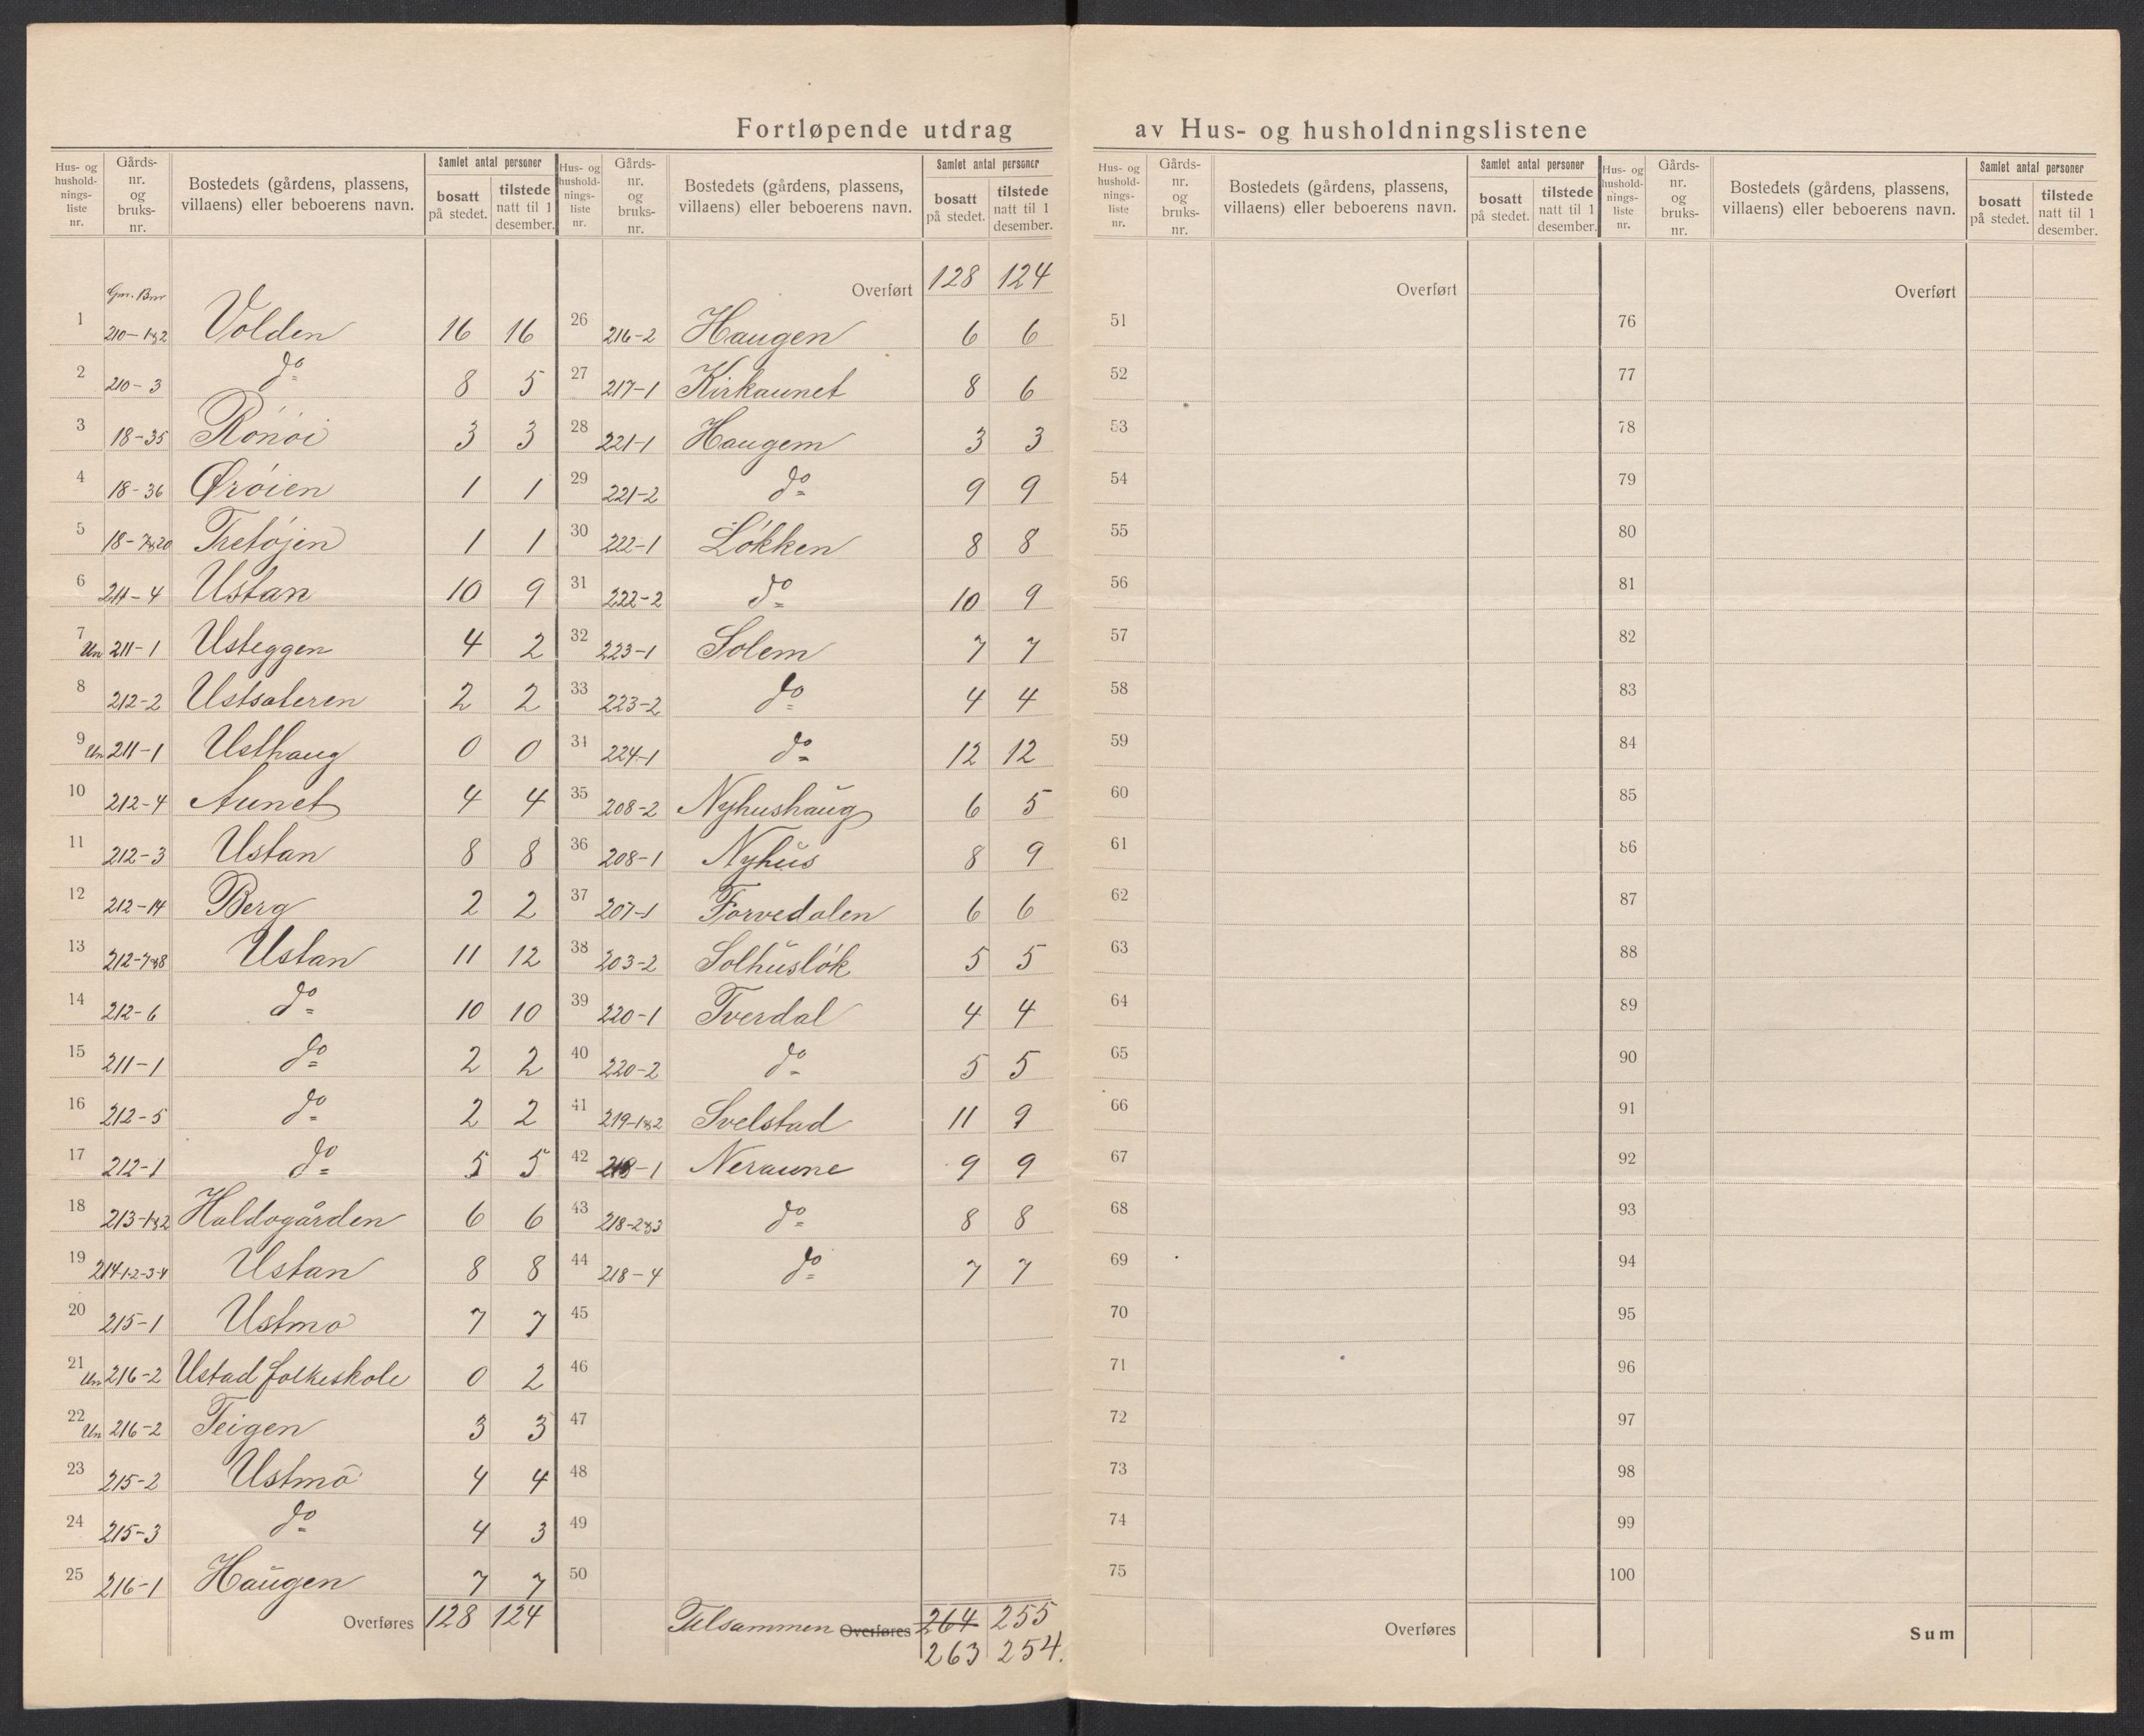 Fortløpende utdrag av Hus- og husholdningslistene
Hus- og husholdningsliste nr. | Gårdsnr. og bruksnr. | Bostedets (gårdens, plassens, villaens) eller beboerens navn. | Samlet antal personer bosatt på stedet. | tilstede natt til 1 desember.
Gnr. Bnr
1 210-1&2 Volden 16 16
2 210-3 do 8 5
3 18-35 Rönöi 3 3
4 18-36 Øröien 1 1
5 18-7&20 Tretöjen 1 1
6 211-4 Ustan 10 9
7 Un 211-1 Usteggen 4 2
8 212-2 Ustsæteren 2 2
9 Un 211-1 Usthaug 0 0
10 212-4 Aunet 4 4
11 212-3 Ustan 8 8
12 212-14 Berg 2 2
13 212-7&8 Ustan 11 12
14 212-6 do 10 10
15 211-1 do 2 2
16 212-5 do 2 2
17 212-1 do 5 5
18 213-1&2 Haldogården 6 6
19 214-1-2-3-4 Ustan 8 8
20 215-1 Ustmo 7 7
21 Un 216-2 Ustad folkeskole 0 2
22 Un 216-2 Teigen 3 3
23 215-2 Ustmo 4 4
24 215-3 do 4 3
25 216-1 Haugen 7 7
Overføres 128 124
Hus- og husholdningsliste nr. | Gårdsnr. og bruksnr. | Bostedets (gårdens, plassens, villaens) eller beboerens navn. | Samlet antal personer bosatt på stedet. | tilstede natt til 1 desember.
Overført 128 124
26 216-2 Haugen 6 6
27 217-1 Kirkaunet 8 6
28 221-1 Haugem 3 3
29 221-2 do 9 9
30 222-1 Lökken 8 8
31 222-2 do 10 9
32 223-1 Solem 7 7
33 223-2 do 4 4
34 224-1 do 12 12
35 208-2 Nyhushaug 6 5
36 208-1 Nyhus 8 9
37 207-1 Forvedalen 6 6
38 203-2 Solhuslök 5 5
39 220-1 Tverdal 4 4
40 220-2 do 5 5
41 219-1&2 Svelstad 11 9
42 218-1 Neraune 9 9
43 218-2&3 do 8 8
44 218-4 do 7 7
45
46
47
48
49
50
Tilsammen Overføres 264 255
263 254.
Hus- og husholdningsliste nr. | Gårdsnr. og bruksnr. | Bostedets (gårdens, plassens, villaens) eller beboerens navn. | Samlet antal personer bosatt på stedet. | tilstede natt til 1 desember.
Overført
51
52
53
54
55
56
57
58
59
60
61
62
63
64
65
66
67
68
69
70
71
72
73
74
75
Overføres
Hus- og husholdningsliste nr. | Gårdsnr. og bruksnr. | Bostedets (gårdens, plassens, villaens) eller beboerens navn. | Samlet antal personer bosatt på stedet. | tilstede natt til 1 desember.
Overført
76
77
78
79
80
81
82
83
84
85
86
87
88
89
90
91
92
93
94
95
96
97
98
99
100
Sum